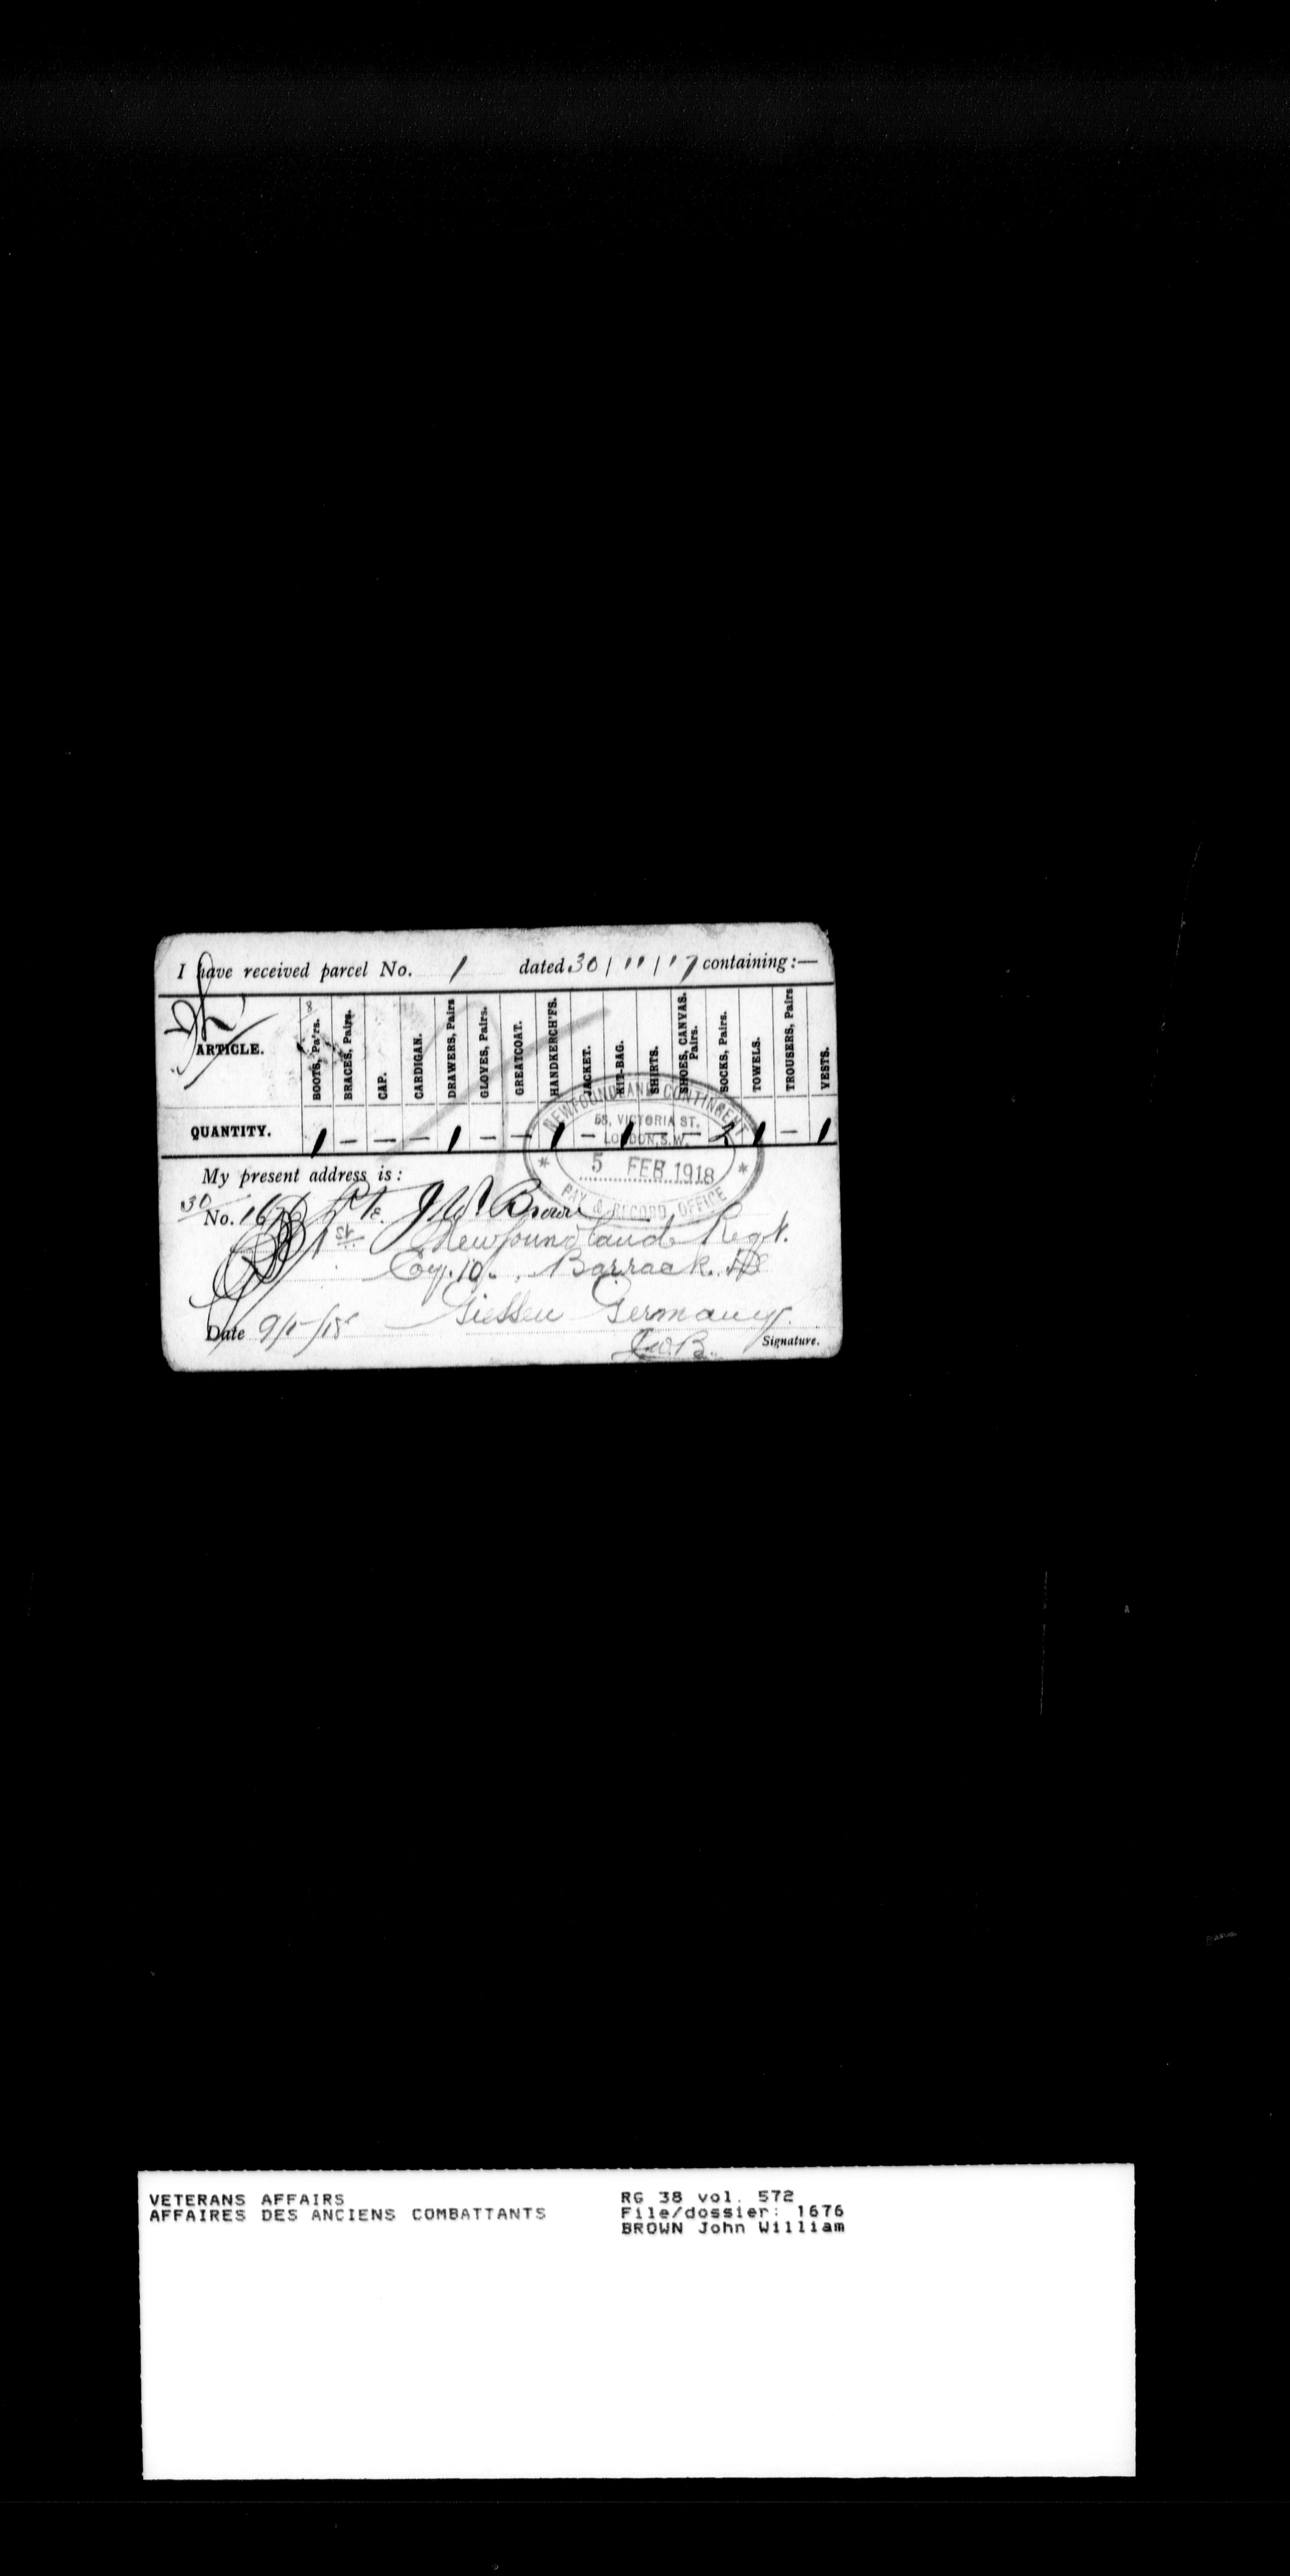 I have received parcel No. 1 dated 30/11/17 containing:—
ARTICLE.
BOOTS, Pairs.
BRACES, Pairs.
CAP.
CARDIGAN.
DRAWERS, Pairs
GLOVES, Pairs.
GREATCOAT.
HANDKERCH'FS.
JACKET.
KIT-BAG.
SHIRTS.
SHOES, CANVAS. Pairs.
SOCKS, Pairs.
TOWELS.
TROUSERS, Pairs
VESTS.
QUANTITY. 1 — — — 1 — — 1 — 1 — — 2 1 — 1
NEWFOUNDLAND CONTINGENT
58, VICTORIA ST.
LONDON, S.W.
5 FEB 1918
PAY & RECORD OFFICE
My present address is:
30
No. Pte. J W Brown
1st Newfoundland Regt.
Coy. 10. Barrack.
Giessen Germany.
Date 9/1/18
J.W.B. Signature.
VETERANS AFFAIRS
AFFAIRES DES ANCIENS COMBATTANTS
RG 38 vol. 572
File/dossier: 1676
BROWN John William